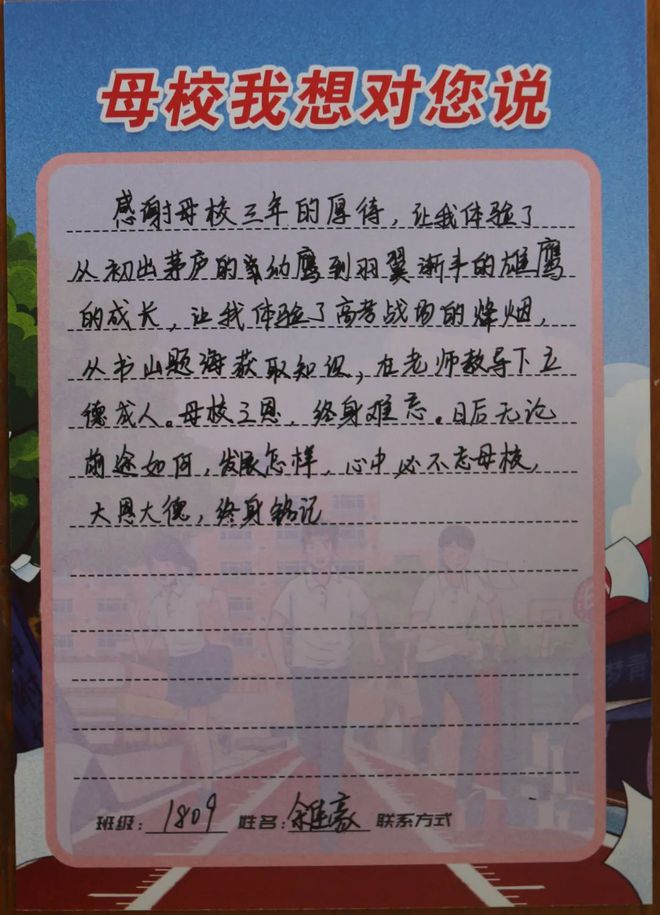 母校我想对您说
感谢母校三年的厚待，让我体验了
从初出茅庐的幼鹰到羽翼渐丰的雄鹰
的成长，让我体验了高考战场的烽烟，
从书山题海获取知识，在老师教导下立
德成人。母校之恩，终身难忘。日后无论
前途如何，发展怎样，心中必不忘母校，
大恩大德，终身铭记
班级：1809 姓名：豪 联系方式